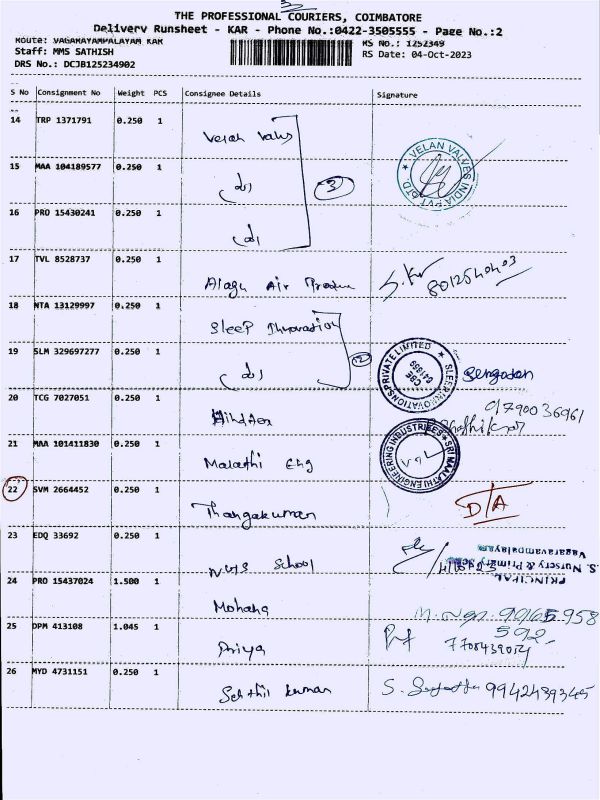 THE PROFESSIONAL COURIERS, COIMBATORE
Delivery Runsheet - KAR - Phone No.:0422-3505555 - Page No.:2
Route: VAGARAYAMPALAYAM KAR
RS No.: 1252349
Staff: MMS SATHISH
RS Date: 04-Oct-2023
DRS No.: DCJB125234902
S No Consignment No Weight PCS Consignee Details Signature
14 TRP 1371791 0.250 1 Velan Valvs
15 MAA 104189577 0.250 1 do 3 VELAN VALVES INDIA PVT LTD
16 PRO 15430241 0.250 1 do
17 TVL 8528737 0.250 1 Alagu Air
18 NTA 13129997 0.250 1 Sleep Innovation
19 SLM 329697277 0.250 1 do 12 SLEEP INNOVATIONS PRIVATE LIMITED CBE 641659 Sengodan
20 TCG 7027051 0.250 1
21 MAA 101411830 0.250 1 Malathi Eng SRI MALATHI ENGINEERING INDUSTRIES
22 SVM 2664452 0.250 1 Thangakumar
23 EDQ 33692 0.250 1 School PRINCIPAL S. Nursery & Primary Vagarayampalayam
24 PRO 15437024 1.500 1 Mohana
25 DPM 413108 1.045 1 Priya
26 MYD 4731151 0.250 1 Senthil Kumar 9942439345